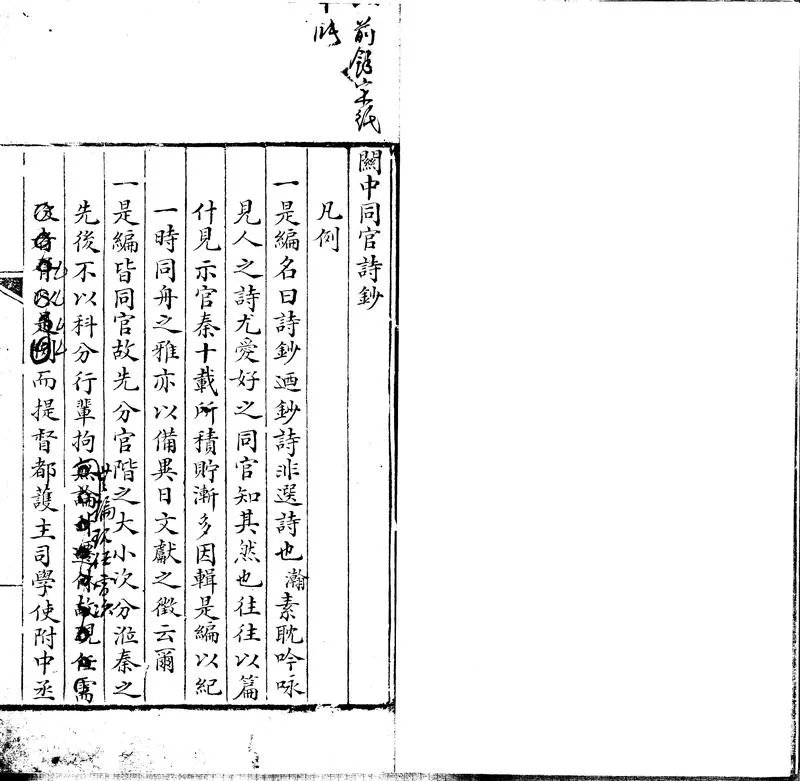 前餘宋紙
關中同官詩鈔
凡例
一是編名曰詩鈔迺鈔詩非選詩也瀚素耽吟咏
見人之詩尤愛好之同官知其然也往往以篇
什見示官秦十載所積貯漸多因輯是編以紀
一時同舟之雅亦以備異日文獻之徵云爾
一是編皆同官故先分官階之大小次分涖秦之
先後不以科分行輩拘無論現任需
而提督都護主司學使附中丞